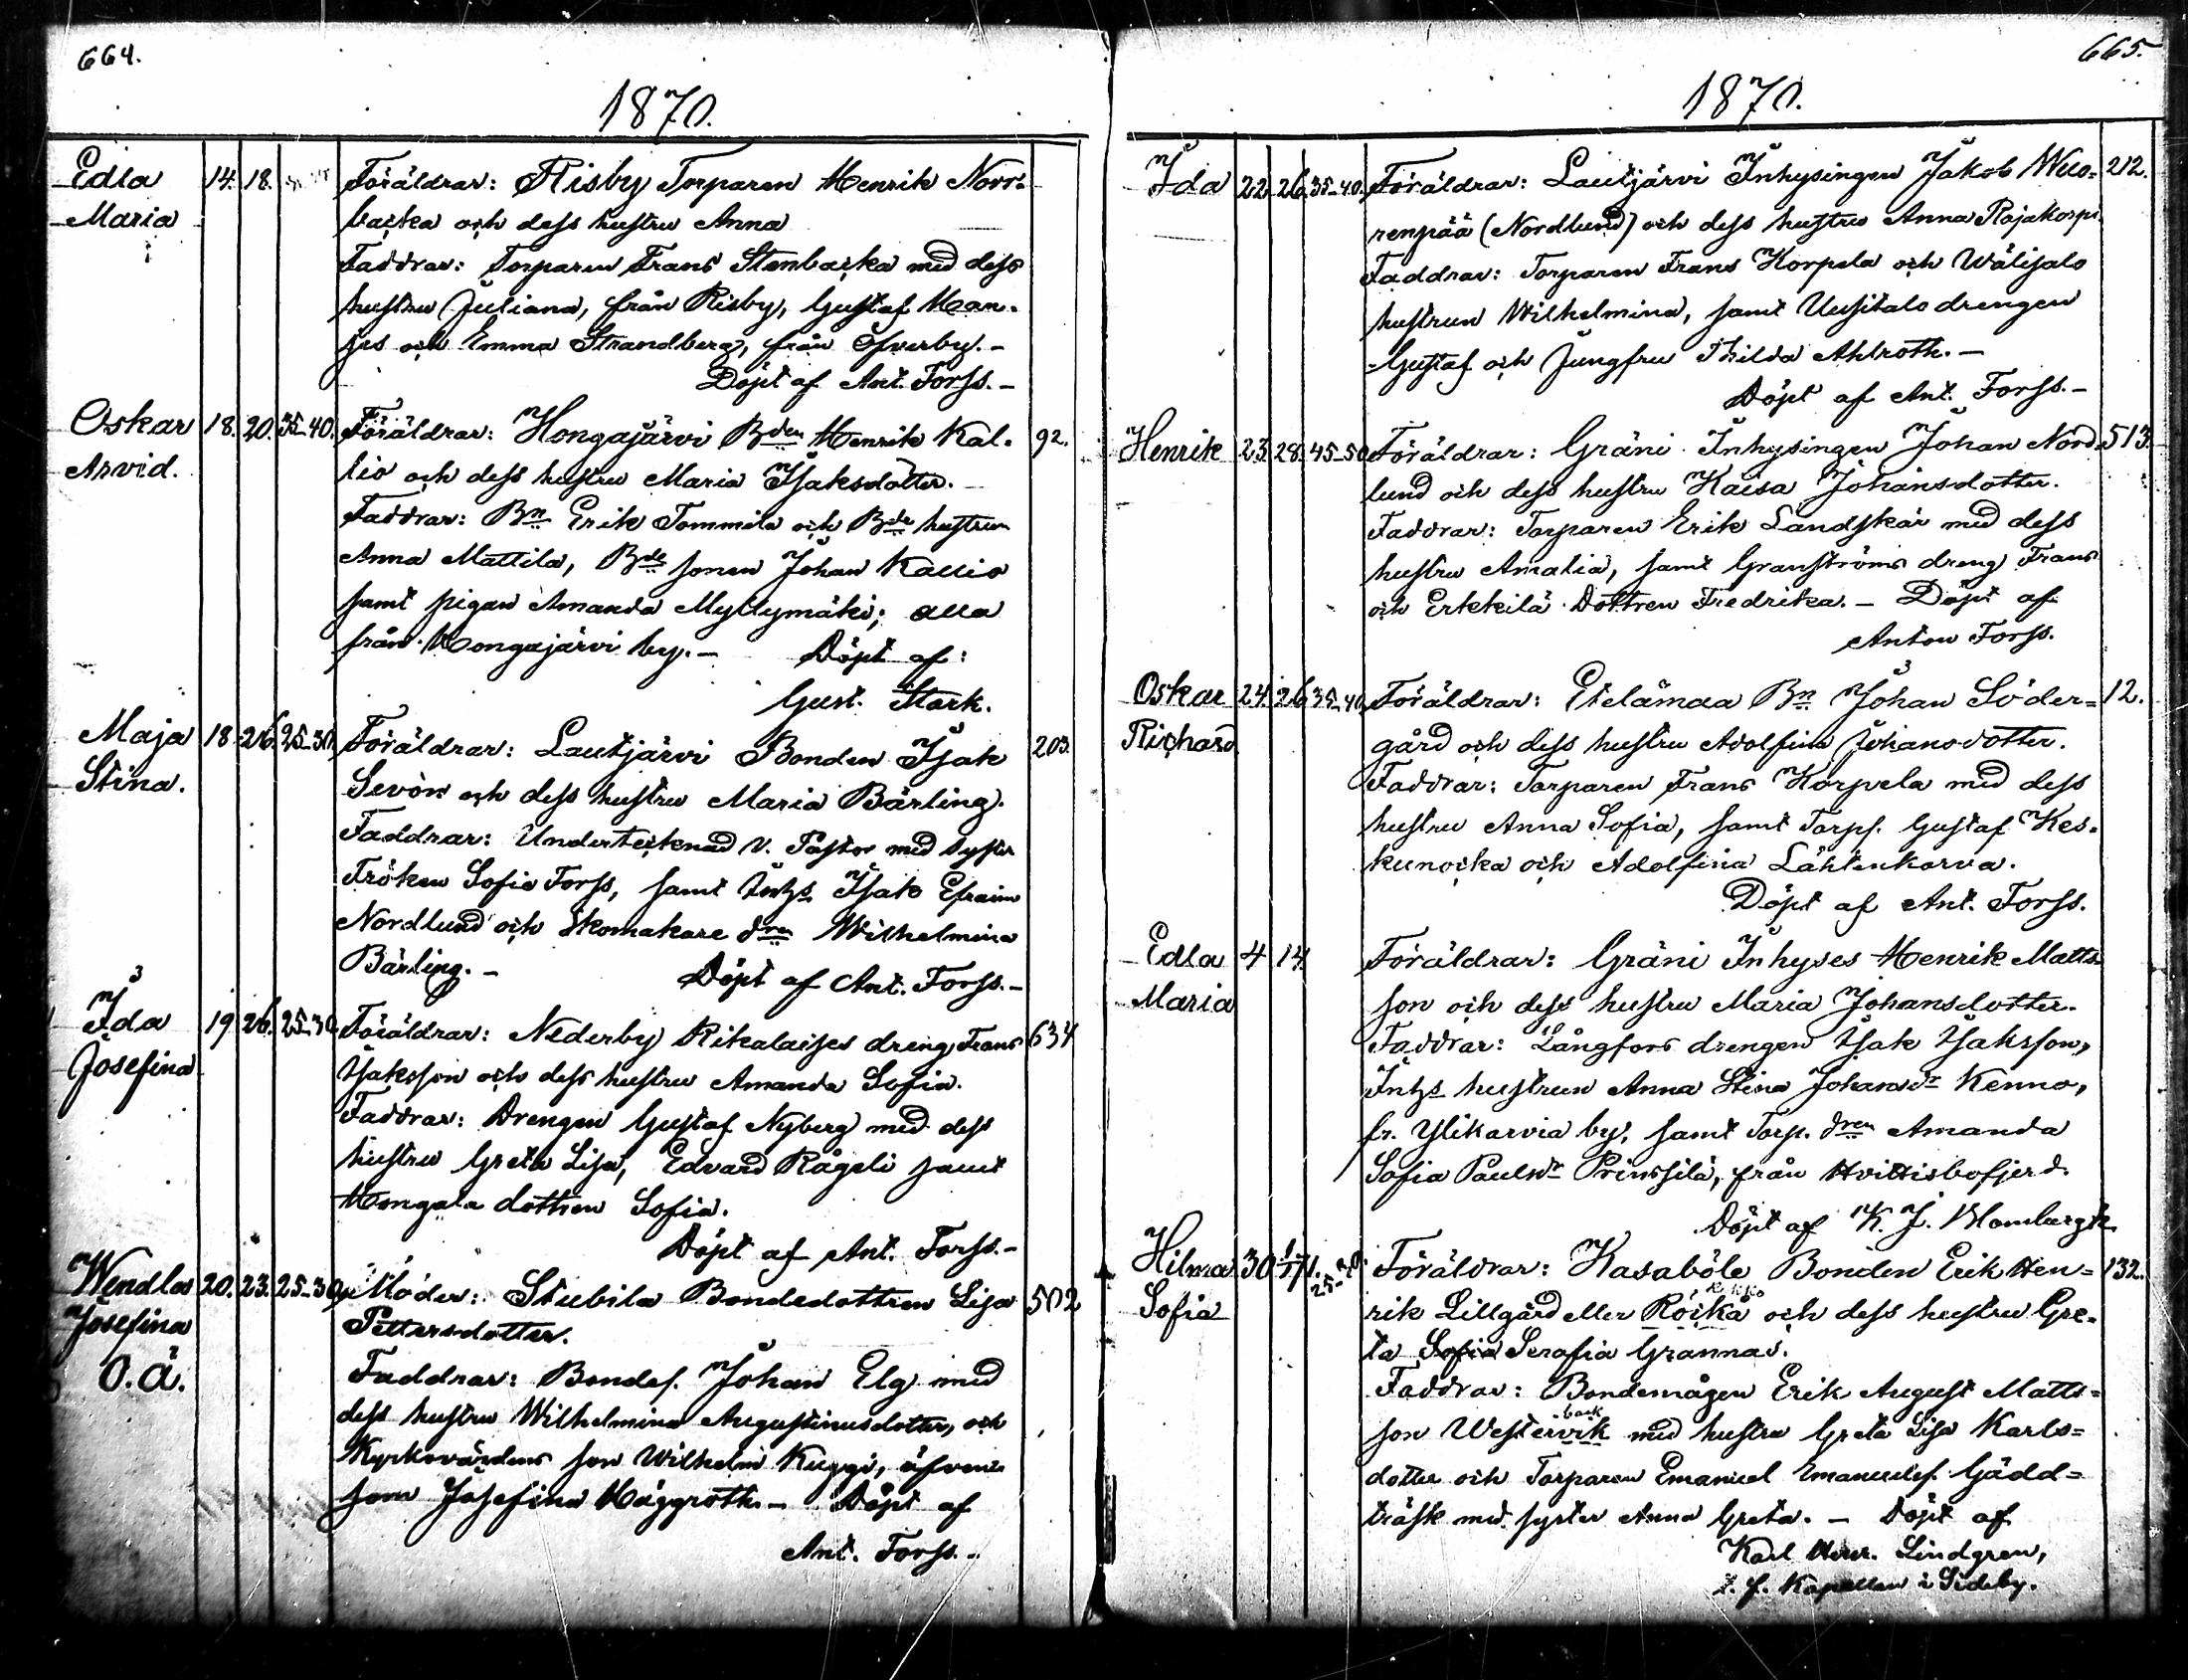 664.
1870.
Edla 14. 18. Föräldrar: Risby Torparen Henrik Norr-
Maria backa och dess hustru Anna
Faddrar: Torparen Frans Stenbacka med dess
hustru Juliana, från Risby, Gustaf Man-
jes och Emma Strandberg, från Öfverby.-
Döpt af Ant. Forss.-
Oskar 18. 20. 35-40. Föräldrar: Hongajärvi Bden Henrik Kal- 92.
Arvid. lio och dess hustru Maria Isaksdotter.
Faddrar: Bn Erik Tommila och Bde hustrun
Anna Mattila, Bde sonen Johan Kallio
samt pigan Amanda Myllymäki; alla
från Hongajärvi by.- Döpt af:
Gust. Stark.
Maja 18 26. 25-30. Föräldrar: Lautjärvi Bonden Isak 203.
Stina. Sevón och dess hustru Maria Bärling.
Faddrar: Undertecknad V. Pastor med syster
Fröken Sofia Forss, samt Inhs Isak Efraim
Nordlund och Skomakare dren Wilhelmina
Bärling.- Döpt af Ant. Forss.-
3
Ida 19 26. 25-30. Föräldrar: Nederby Rikalaises dreng Frans 634
Josefina Isaksson och dess hustru Amanda Sofia.
Faddrar: Drengen Gustaf Nyberg med dess
hustru Greta Lisa, Edvard Rågeli samt
Hongala dottren Sofia.
Döpt af Ant. Forss.-
Wendla 20. 23. 25-30. Moder: Stubila Bondedottren Lisa 502
Josefina Pettersdotter.
O.ä. Faddrar: Bondes. Johan Elg med
dess hustru Wilhelmina Augustinusdotter, och
Kyrkovärdens son Wilhelm Kuggi, äfven-
som Josefina Häggroth.- Döpt af
Ant. Forss.-
665.
1870.
Ida 22. 26. 35-40. Föräldrar: Lautjärvi Inhysingen Jakob Wuo- 212.
renpää (Nordlund) och dess hustru Anna Rajakorpi
Faddrar: Torparen Frans Korpela och Wälisalo
hustrun Wilhelmina, samt Uusitalo drengen
Gustaf och Jungfru Thilda Ahlroth.-
Döpt af Ant. Forss.-
Henrik 23. 28. 45-50. Föräldrar: Gräni Inhysingen Johan Nord- 513.
lund och dess hustru Kaisa Johansdotter.
Faddrar: Torparen Erik Landskär med dess
hustru Amalia, samt Granströms dreng Frans
och Erkkilä Dottren Fredrika.- Döpt af
Anton Forss.
3
Oskar 24. 26. 35-40. Föräldrar: Etelämaa Bn Johan Söder- 12.
Richard gård och dess hustru Adolfina Johansdotter.
Faddrar: Torparen Frans Korpela med dess
hustru Anna Sofia, samt Torps. Gustaf Kes-
kunocka och Adolfina Lähtenkorva.
Döpt af Ant. Forss.
Edla 4 14. Föräldrar: Gräni Inhyses Henrik Matts-
Maria son och dess hustru Maria Johansdotter.
Faddrar: Långfors drengen Isak Isaksson,
Inhs hustrun Anna Stina Johansdr Kenno,
fr. Ylikarvia by, samt Torp. dren Amanda
Sofia Paulsdr Prinssilä, från Hvittisbofjerd.
Döpt af K. J. Blombergh.
Hilma 30 1/1 71. 25-30. Föräldrar: Kasaböle Bonden Erik Hen- 132.
Sofia rik Lillgård eller Röikä och dess hustru Gre-
ta Sofia Serafia Grannas.
Faddrar: Bondemågen Erik August Matts-
back
son Westervik med hustru Greta Lisa Karls-
dotter och Torparen Emanuel Emanuelss. Gädd-
träsk med syster Anna Greta.- Döpt af
Karl Henr. Lindgren,
t. f. Kapellan i Sideby.